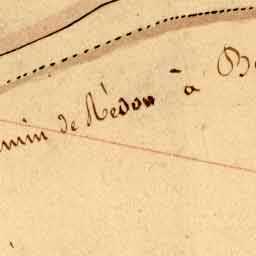 min de Rédon à B